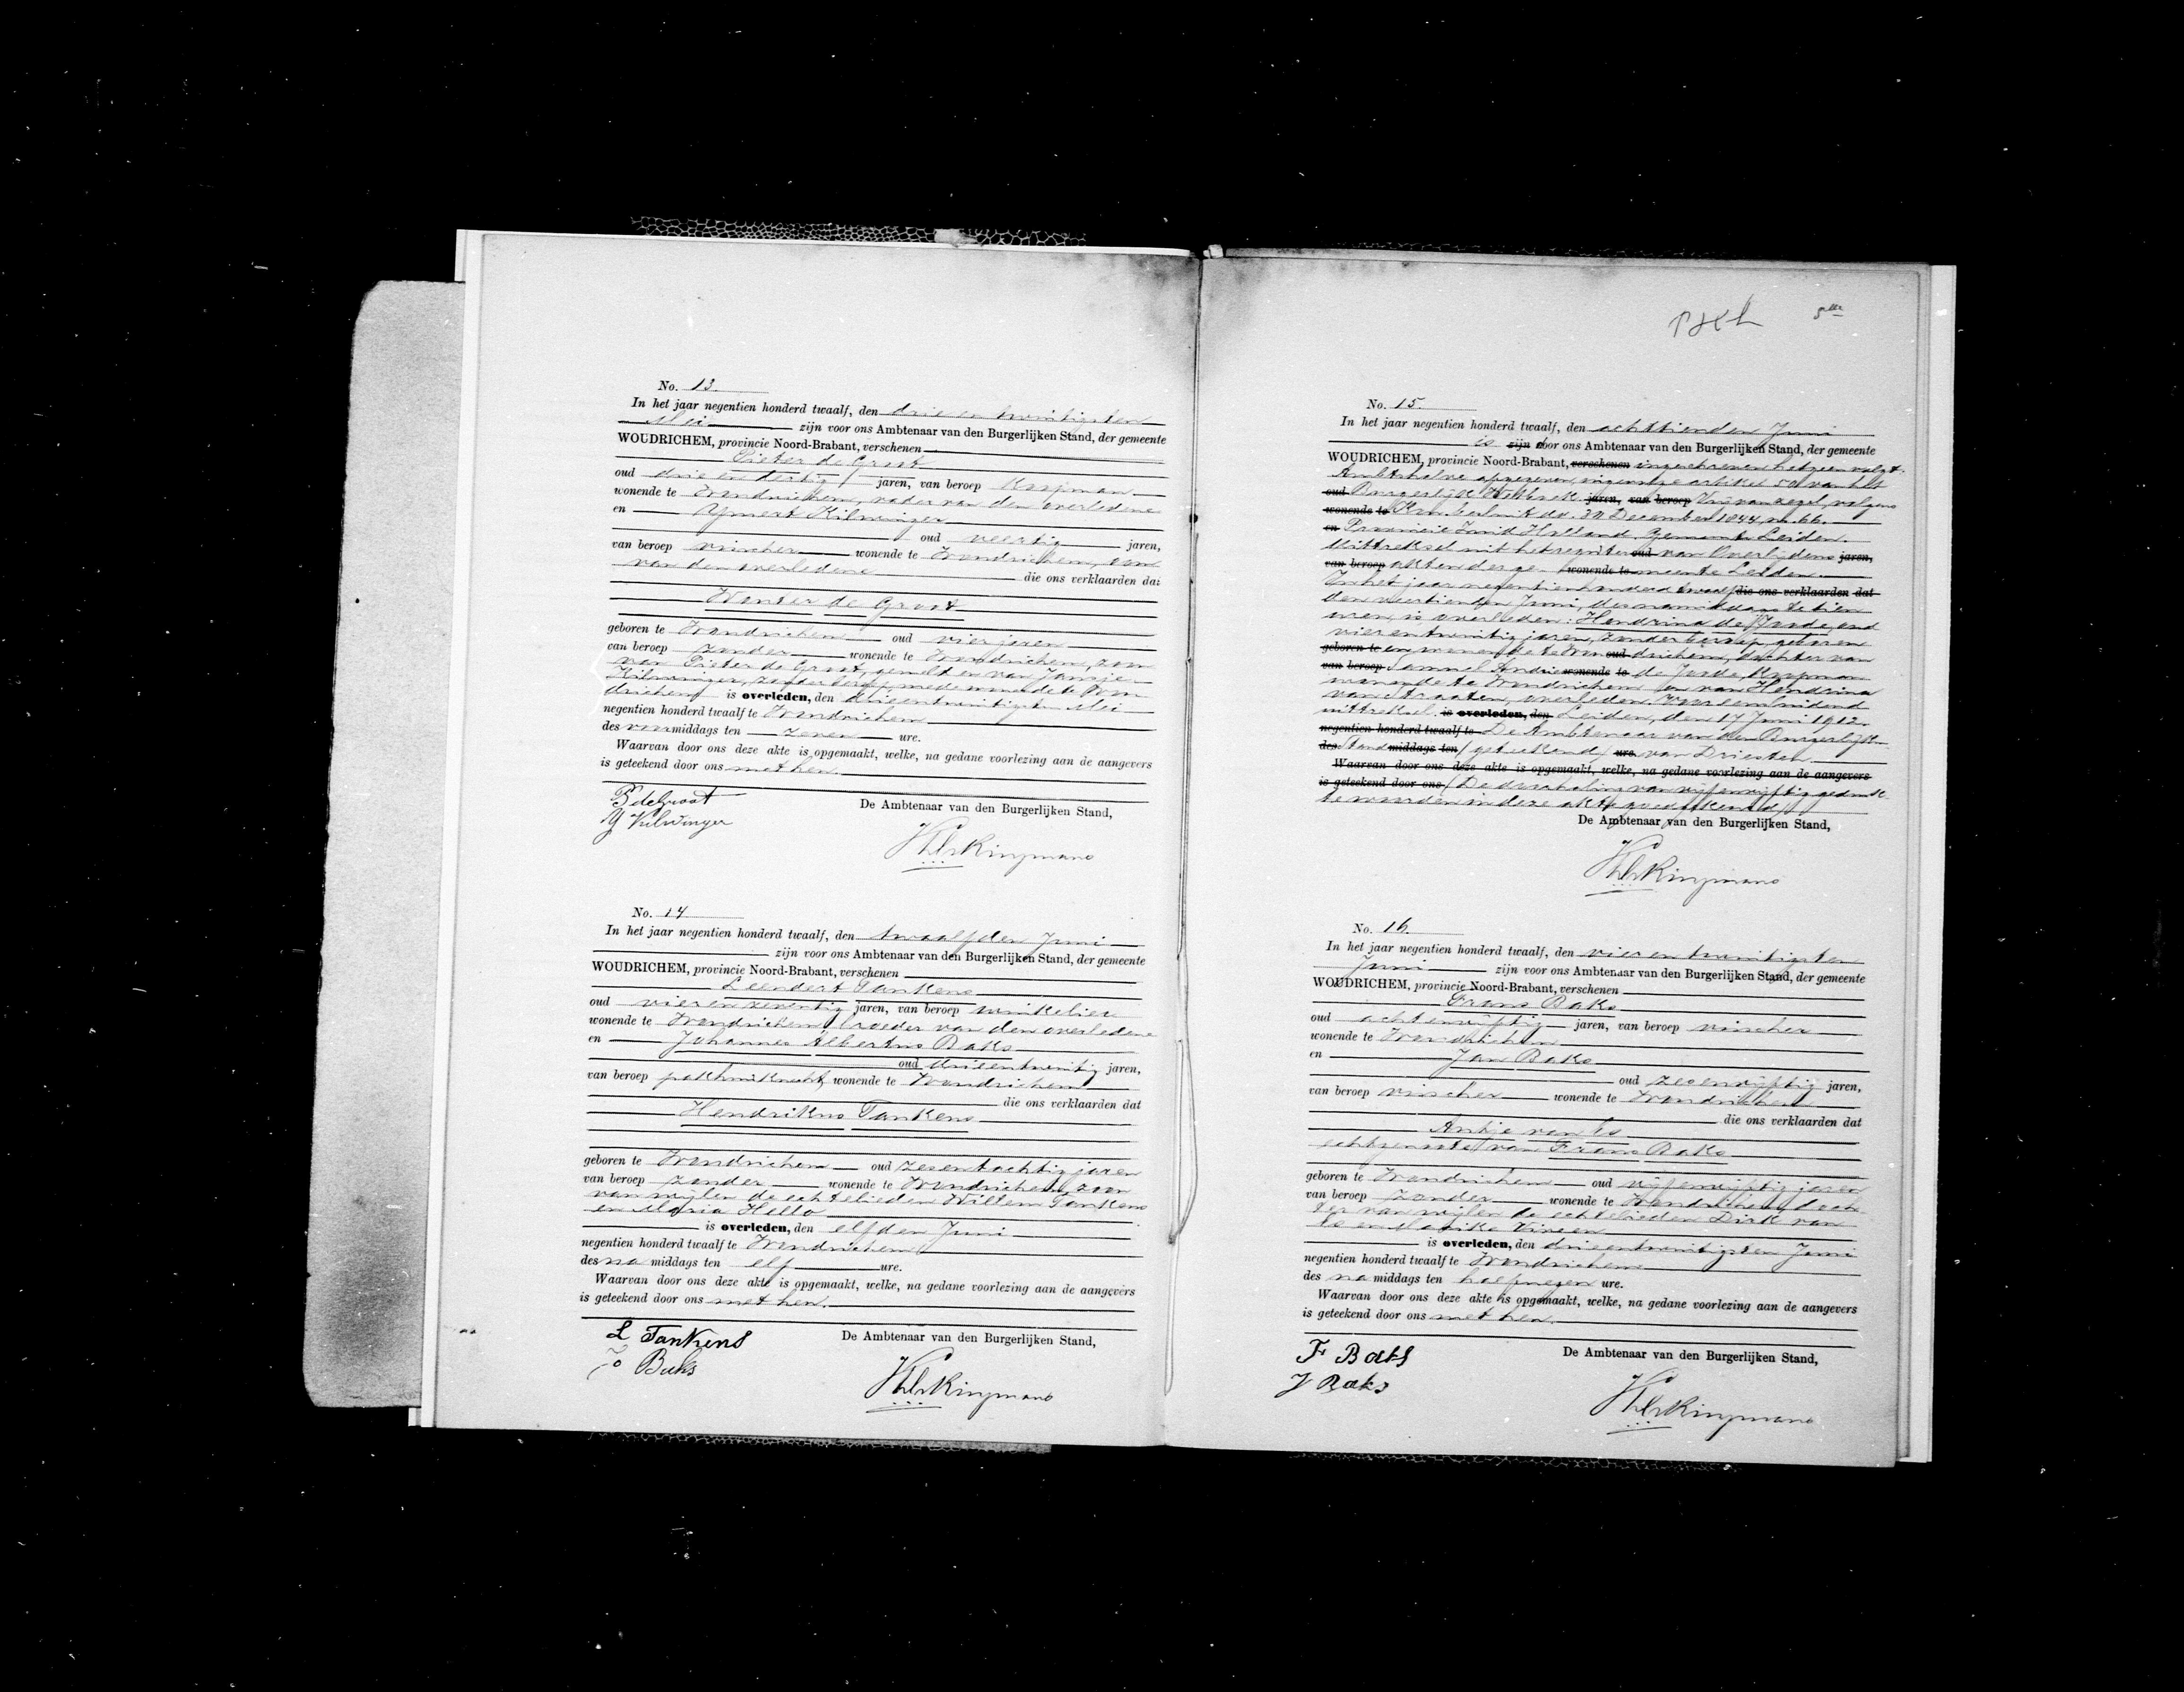 No. 13.
In het jaar negentien honderd twaalf, den drie en twintigsten
Mei zijn voor ons Ambtenaar van den Burgerlijken Stand, der gemeente
WOUDRICHEM, provincie Noord-Brabant, verschenen
Pieter de Groot
oud drie en dertig jaren, van beroep Koopman
wonende te Woudrichem, vader van den overledene
en Ijmert Kilwinger
oud veertig jaren,
van beroep visscher wonende te Woudrichem, oom
van den overledene die ons verklaarden dat
Wouter de Groot
geboren te Woudrichem oud vier jaren
van beroep zonder wonende te Woudrichem, zoon
van Pieter de Groot, gemeld en van Jansje
Kilwinger, zonder beroep, mede wonende te Wou-
drichem is overleden, den drieentwintigsten Mei
negentien honderd twaalf te Woudrichem
des voormiddags ten zeven ure.
Waarvan door ons deze akte is opgemaakt, welke, na gedane voorlezing aan de aangevers
is geteekend door ons met hen.
P de Groot
Y Kilwinger
De Ambtenaar van den Burgerlijken Stand,
No. 14
In het jaar negentien honderd twaalf, den twaalfden Juni
zijn voor ons Ambtenaar van den Burgerlijken Stand, der gemeente
WOUDRICHEM, provincie Noord-Brabant, verschenen
Leendert Tankens
oud vier en zeventig jaren, van beroep winkelier
wonende te Woudrichem, broeder van den overledene
en Johannes Albertus Baks
oud drieentwintig jaren,
van beroep pakhuisknecht, wonende te Woudrichem
die ons verklaarden dat
Hendrikus Tankens
geboren te Woudrichem oud zesentachtig jaren
van beroep zonder wonende te Woudrichem, zoon
van wijlen de echtelieden Willem Tankens
en Maria Hello
is overleden, den elfden Juni
negentien honderd twaalf te Woudrichem
des na middags ten elf ure.
Waarvan door ons deze akte is opgemaakt, welke, na gedane voorlezing aan de aangevers
is geteekend door ons met hen.
L Tankens
Jo Baks
De Ambtenaar van den Burgerlijken Stand,
5de
No. 15.
In het jaar negentien honderd twaalf, den achttienden Juni
is zijn door ons Ambtenaar van den Burgerlijken Stand, der gemeente
WOUDRICHEM, provincie Noord-Brabant, verschenen ingeschreven hetgeen volgt.
Ambtshalve afgegeven, ingevolge artikel 50 van het
oud Burgerlijk Wetboek. jaren, van beroep Vrij van zegel, volgens
wonende te Kon. besluit dd. 30 December 1844, no. 66.
en Provincie Zuid Holland. Gemeente Leiden.
Uittreksel uit het register oud van Overlijdens jaren,
van beroep akten der ge- wonende te meente Leiden.
In het jaar negentienhonderd twaalf die ons verklaarden dat
den veertienden Juni, des namiddags te tien
uren, is overleden: Hendrina de Jorde, oud
vier en twintig jaren, zonder beroep, geboren
geboren te en wonende te Wou oud drichem, dochter van
van beroep Samuel Andrie wonende te de Jorde, Koopman
wonende te Woudrichem en van Hendrina
van Straaten, overleden. Voor eensluidend
uittreksel. is overleden, den Leiden, den 17 Juni 1912.
negentien honderd twaalf te De Ambtenaar van den Burgerlijken
des Stand middags ten (geteekend) ure. van Driesten.
Waarvan door ons deze akte is opgemaakt, welke, na gedane voorlezing aan de aangevers
is geteekend door ons (De doorhaling van vijfenvijftig gedrukte
woorden in deze akte goedgekeurd)
De Ambtenaar van den Burgerlijken Stand,
No. 16.
In het jaar negentien honderd twaalf, den vier en twintigsten
Juni zijn voor ons Ambtenaar van den Burgerlijken Stand, der gemeente
WOUDRICHEM, provincie Noord-Brabant, verschenen
Frans Baks
oud achtenvijftig jaren, van beroep visscher
wonende te Woudrichem
en Jan Baks
oud zesenvijftig jaren,
van beroep visscher wonende te Woudrichem
die ons verklaarden dat
Antje van Es
echtgenoote van Frans Baks
geboren te Woudrichem oud vijfenvijftig jaren
van beroep zonder wonende te Woudrichem, doch-
ter van wijlen de echtelieden Dirk van
Es en Marike
is overleden, den drieentwintigsten Juni
negentien honderd twaalf te Woudrichem
des na middags ten half negen ure.
Waarvan door ons deze akte is opgemaakt, welke, na gedane voorlezing aan de aangevers
is geteekend door ons met hen.
F Baks
J Baks
De Ambtenaar van den Burgerlijken Stand,